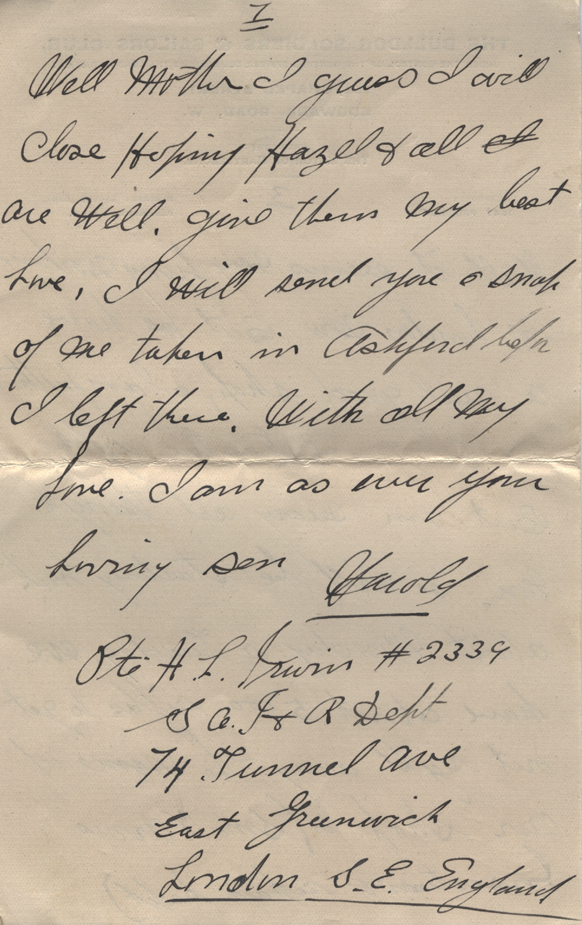 I
Well Mother I guess I will
close Hoping Hazel & all
are Well. give them my best
love, I will send you a snap
of me taken in Ashford befor
I left there. With all my
love. I am as ever your
loving son Harold
Pte H L. Irwin # 2339
S a. I & R Dept
74 Tunnel Ave
East Greenwich
London S. E. England